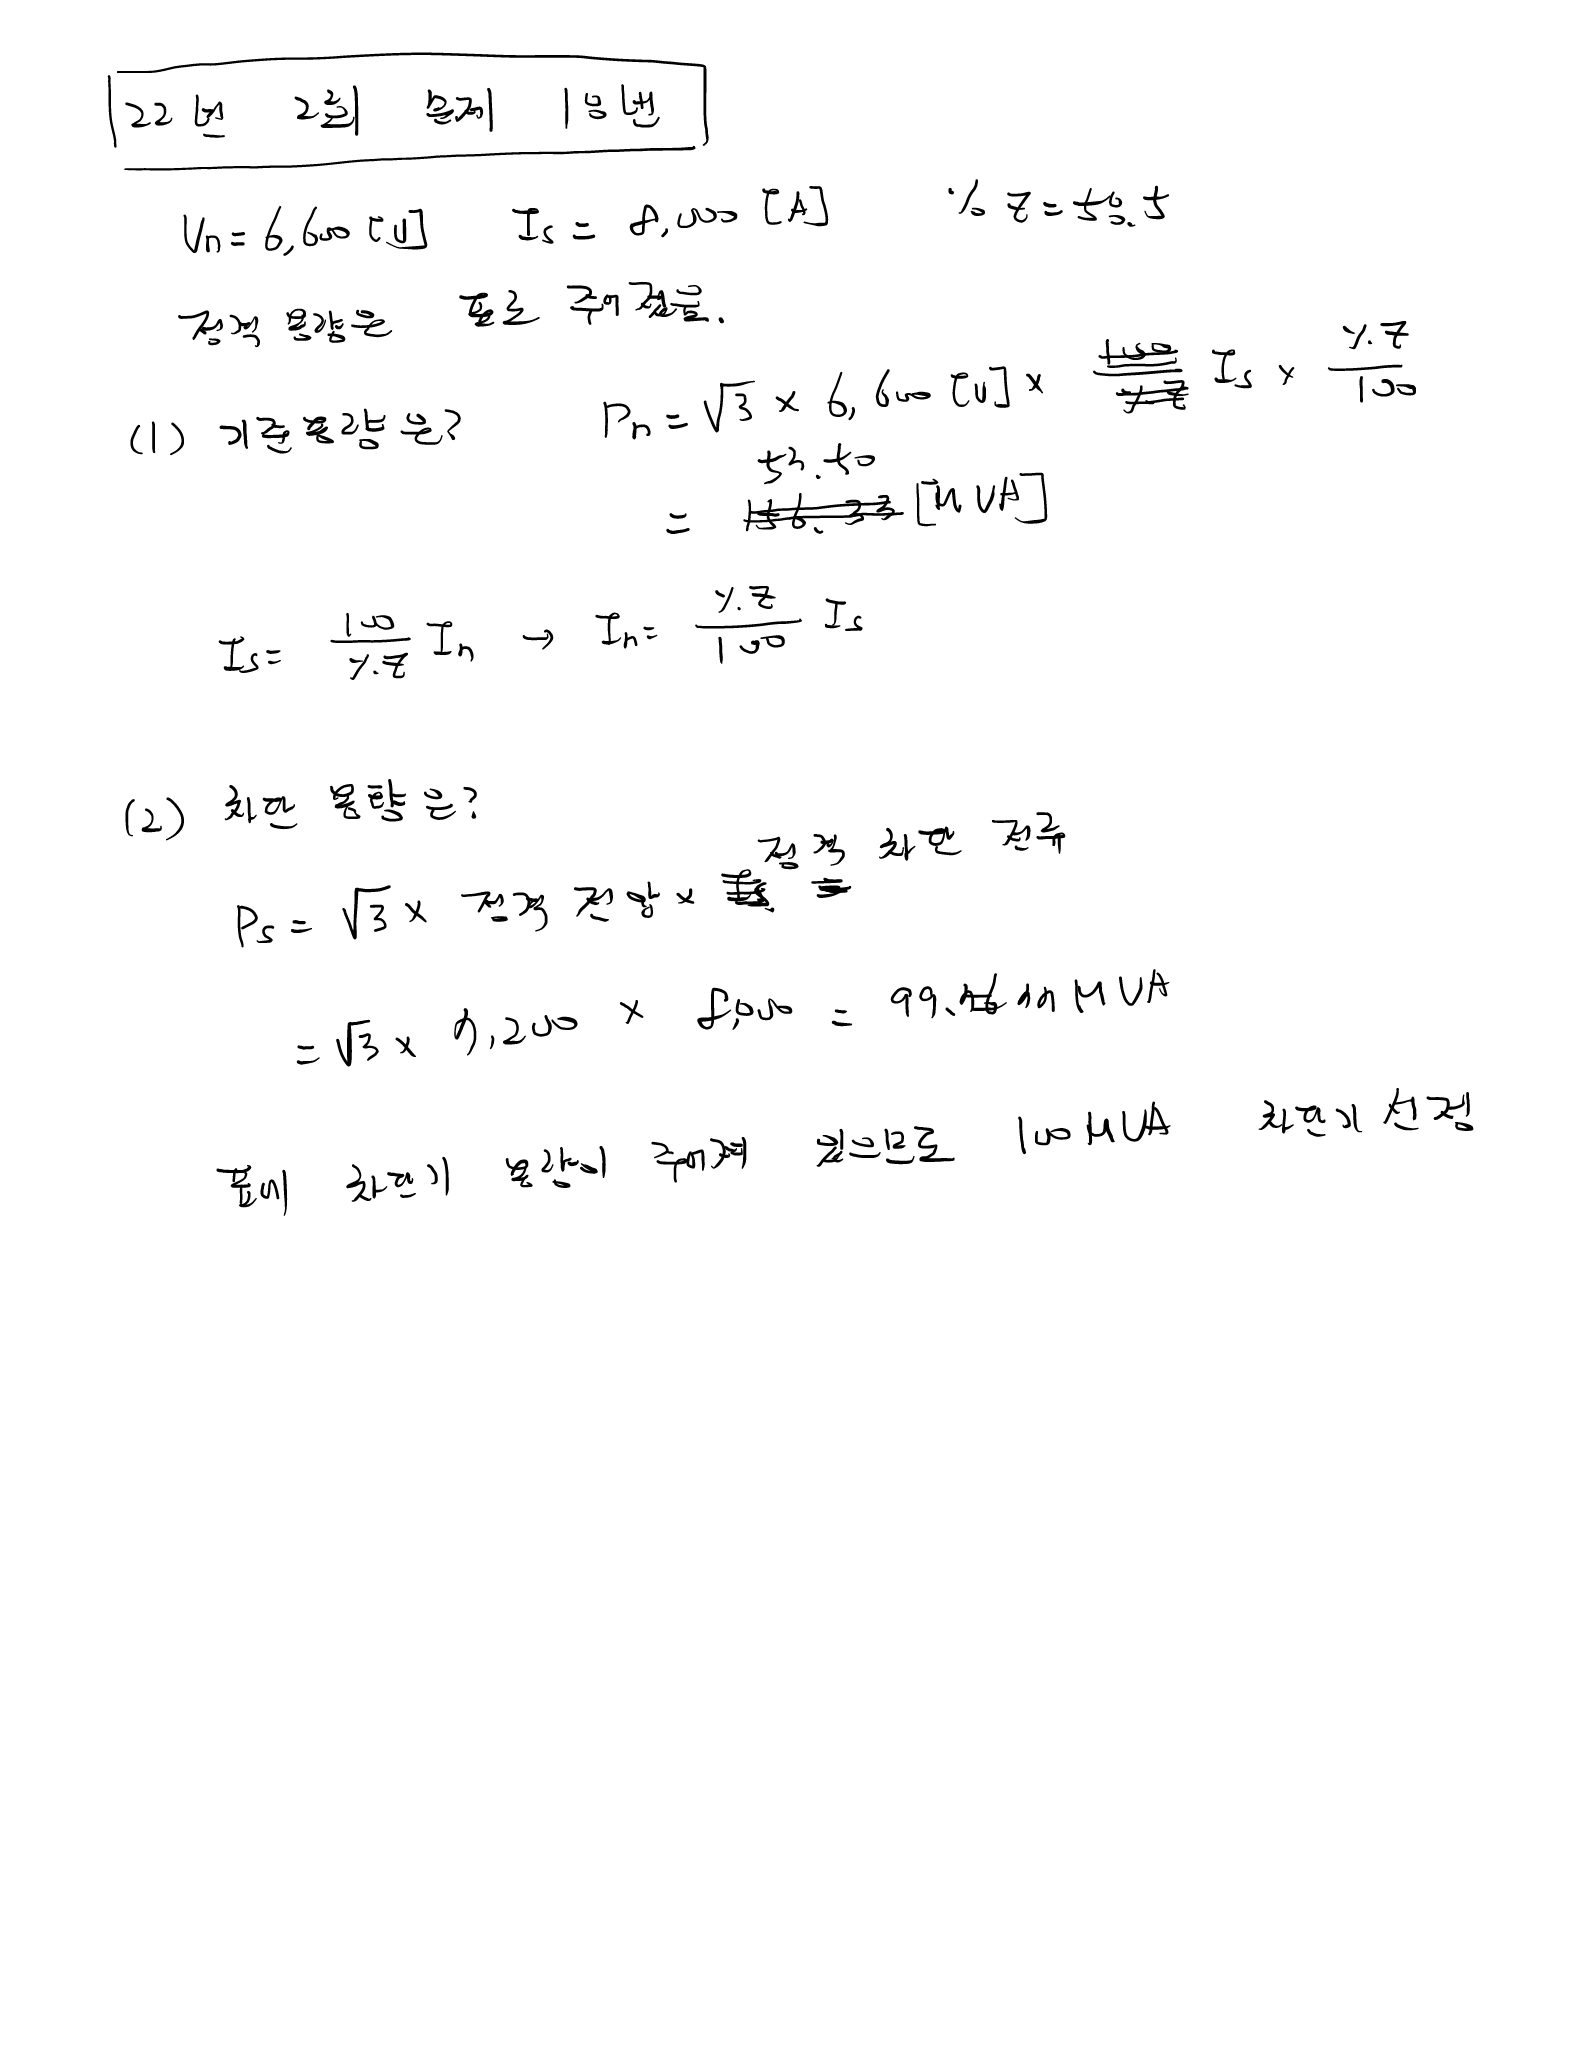 22년 2회 문제 18번
Vn = 6,600 [V] Is = 8,000 [A] % Z = 58.5
정격 용량은 표로 주어졌음.
(1) 기준용량은? Pn = √3 × 6,600 [V] × Is × %Z/100
= 53.50 [MVA]
Is = 100/%Z In → In = %Z/100 Is
(2) 차단 용량은?
Ps = √3 × 정격 전압 × 정격 차단 전류
= √3 × 7,200 × 8,000 = MVA
표에 차단기 용량이 주어져 있으므로 100 MVA 차단기 선정